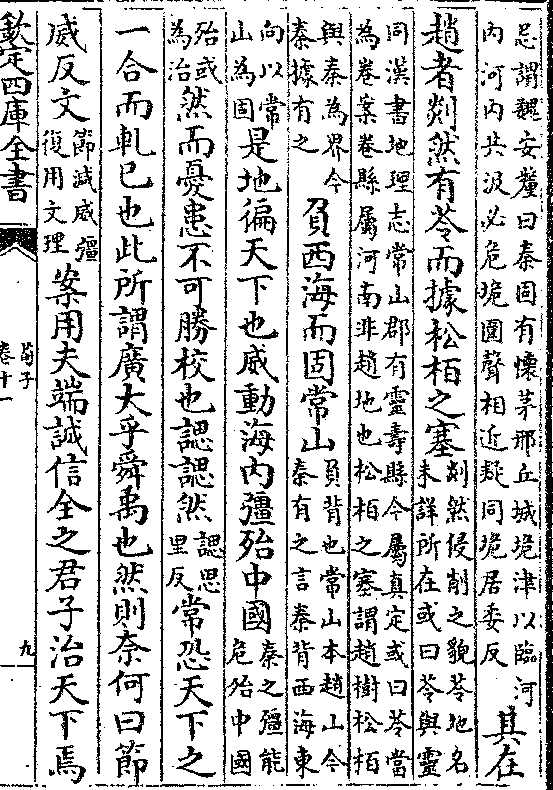 忌謂魏安釐曰秦固有懷茅邢丘城垝津以臨河
內河內共汲必危垝圍聲相近疑同垝居委反
其在
趙者剡然有苓而據松栢之塞
剡然侵削之貌苓地名
未詳所在或曰苓與靈
同漢書地理志常山郡有靈壽縣今屬真定或曰苓當
為卷案卷縣屬河南非趙地也松栢之塞謂趙樹松栢
與秦為界今
秦據有之
負西海而固常山
負背也常山本趙山今
秦有之言秦背西海東
向以常
山為固
是地徧天下也威動海內彊殆中國
秦之彊能
危殆中國
殆或
為治
然而憂患不可勝校也諰諰然
諰思
里反
常恐天下之
一合而軋已也此所謂廣大乎舜禹也然則奈何曰節
威反文
節減威彊
復用文理
案用夫端誠信全之君子治天下焉
欽定四庫全書
荀子
卷十一
九